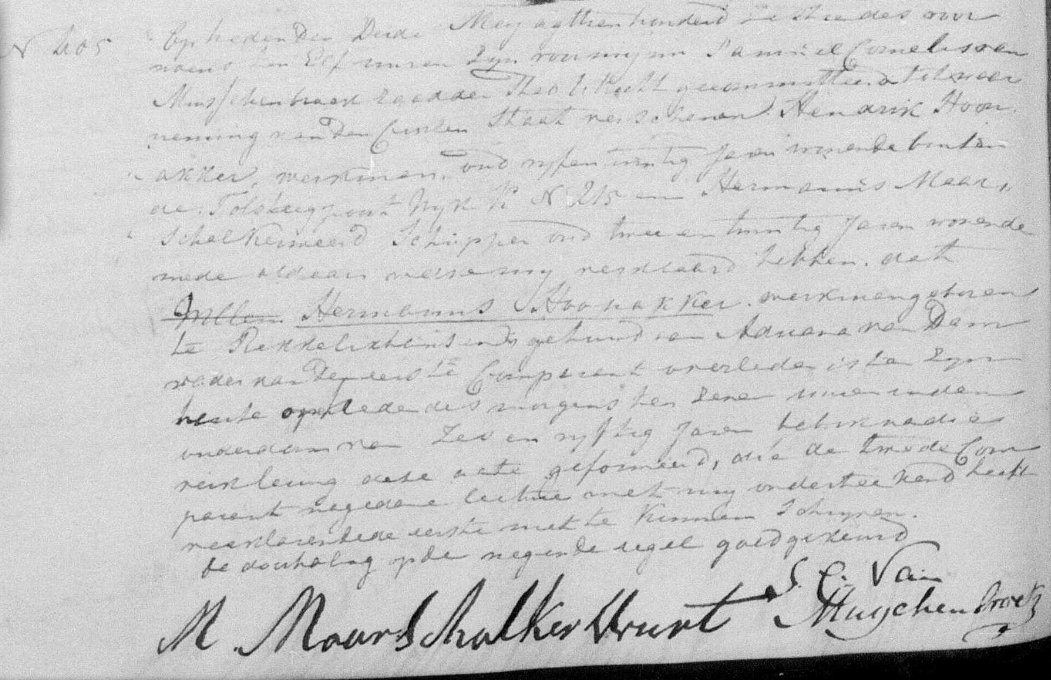 N 405
Op heden den Derde Mey agttien honderd zestien des voor
noens ten Elf uuren Zyn voor myn Samuel Cornelis van
Musschenbroek gecommitteerd tot waar
neming van den Civilen Staat verschenen Hendrik Hoor
akker, werkman, oud vyf en twintig Jaren wonende buiten
de Tolsteegpoort Wyk K N 215 en Hermanus Maar
schalkerweerd Schipper oud twee en twintig Jaren wonende
mede aldaar welke my verklaard hebben dat
Willem Hermanus Hoorakker werkman geboren
te gehuwd van Adriana van Dam
vader van den eerste Comparant overleden is ten Zynen
heute op heden des morgens ten Zeven uuren in den
ouderdom van Zes en vyftig Jaren hebbende
verklering deze acte geformeerd, die de twede Com
parant na gedane lecture met my ondertekend heeft
verklarende de eerste niet te kunnen Schryven.
de doorhaling op de negende regel goedgekeurd
M Maarschalkerweert
S. C. Van
Musschenbroek